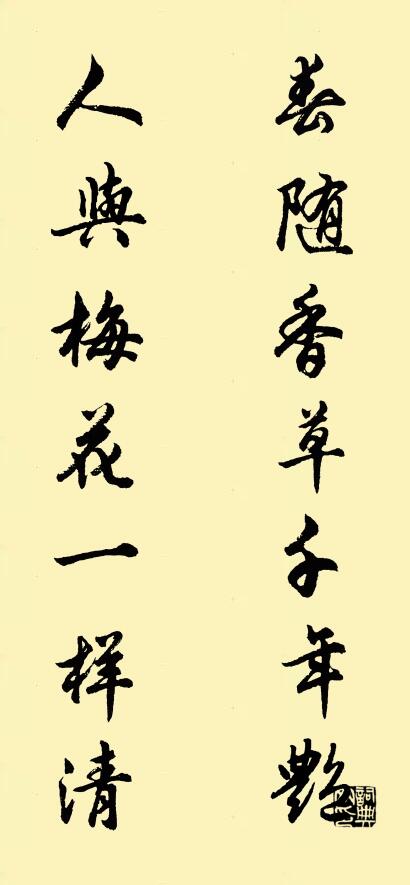 春随香草千年艷
人與梅花一样清